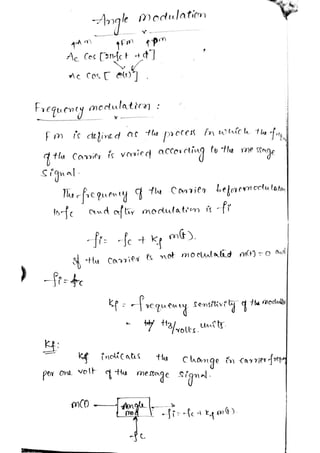 Angle modulation
Am Fm pm
Ac Cos [2πfct + φ]
Ac Cos [θi(t)]
Frequency modulation :
Fm is defined as the process in which the freq
of the carrier is varied according to the message
signal.
The frequency of the carrier before modulation
is fc and after modulation is fi
fi = fc + kf m(t).
If the carrier is not modulated m(t)=0 and
fi = fc
kf = frequency sensitivity of the modula
= Hz/volts. units.
kf:
kf indicates the change in carrier freq
per one volt of the message signal.
m(t) Angle mod fi = fc + kf m(t)
fc